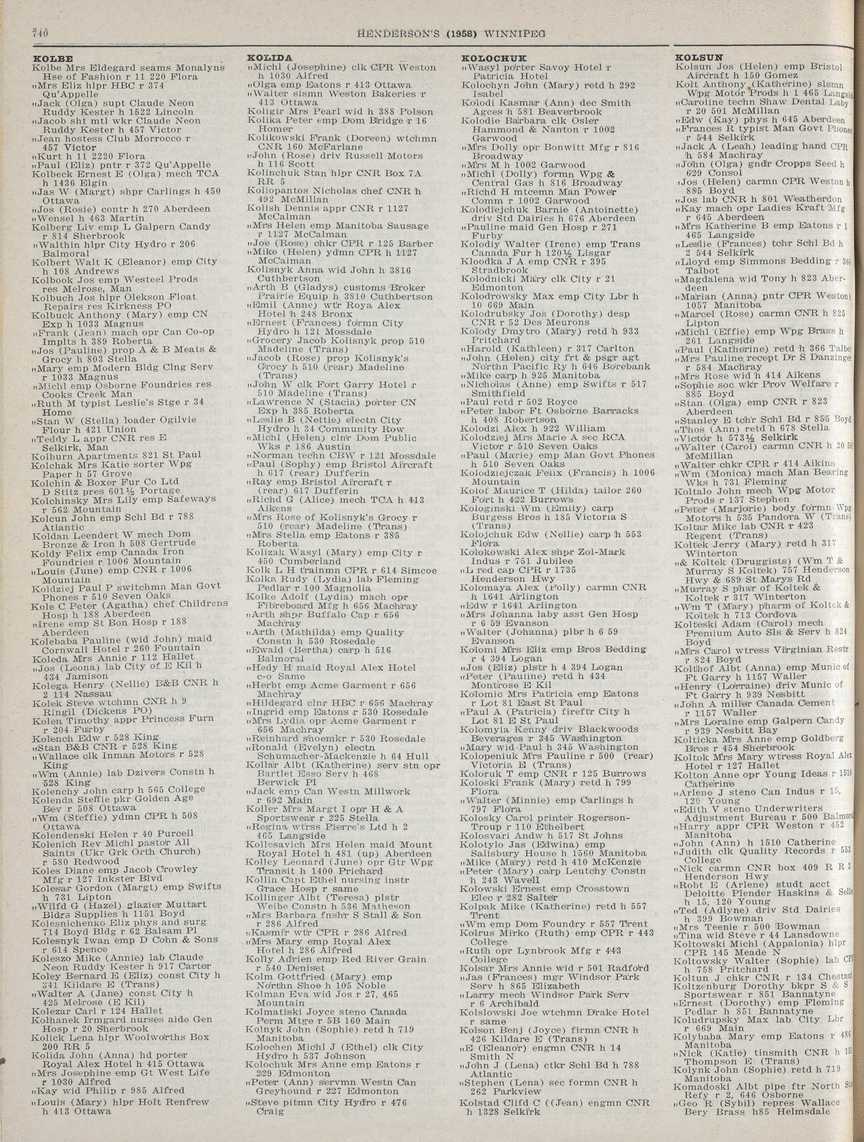 740
HENDERSON'S (1958) WINNIPEG
KOLBE
Kolbe Mrs Eldegard seams Monalyns
Hse of Fashion r 11 220 Flora
„Mrs Eliz hlpr HBC r 374
Qu'Appelle
„Jack (Olga) supt Claude Neon
Ruddy Kester h 1522 Lincoln
„Jacob sht mtl wkr Claude Neon
Ruddy Kester h 457 Victor
„Jean hostess Club Morrocco r
457 Victor
„Kurt h 11 2220 Flora
„Paul (Eliz) pntr r 372 Qu'Appelle
Kolbeck Ernest E (Olga) mech TCA
h 1436 Elgin
„Jas W (Margt) shpr Carlings h 450
Ottawa
„Jos (Rosie) contr h 270 Aberdeen
„Wensel h 463 Martin
Kolberg Liv emp L Galpern Candy
r 814 Sherbrook
„Walthin hlpr City Hydro r 206
Balmoral
Kolbert Walt K (Eleanor) emp City
h 108 Andrews
Kolbook Jos emp Westeel Prods
res Melrose, Man
Kolbuch Jos hlpr Olekson Float
Repairs res Kirkness PO
Kolbuck Anthony (Mary) emp CN
Exp h 1033 Magnus
„Frank (Jean) mach opr Can Co-op
Implts h 389 Roberta
„Jos (Pauline) prop A & B Meats &
Grocy h 803 Stella
„Mary emp Modern Bldg Clng Serv
r 1033 Magnus
„Michl emp Osborne Foundries res
Cooks Creek Man
„Ruth M typist Leslie's Stge r 34
Home
„Stan W (Stella) loader Ogilvie
Flour h 421 Union
„Teddy L appr CNR res E
Selkirk, Man
Kolburn Apartments 821 St Paul
Kolchak Mrs Katie sorter Wpg
Paper h 57 Grove
Kolchin & Boxer Fur Co Ltd
D Stitz pres 601½ Portage
Kolchinsky Mrs Lily emp Safeways
r 562 Mountain
Kolcun John emp Schl Bd r 788
Atlantic
Koldan Leendert W mech Dom
Bronze & Iron h 508 Gertrude
Koldy Felix emp Canada Iron
Foundries r 1006 Mountain
„Louis (June) emp CNR r 1006
Mountain
Koldziej Paul P switchmn Man Govt
Phones r 510 Seven Oaks
Kole C Peter (Agatha) chef Childrens
Hosp h 188 Aberdeen
„Irene emp St Bon Hosp r 188
Aberdeen
Kolebaba Pauline (wid John) maid
Cornwall Hotel r 260 Fountain
Koleda Mrs Annie r 112 Hallet
„Jos (Leona) lab City of E Kil h
434 Jamison
Kolega Henry (Nellie) B&B CNR h
2 114 Nassau
Kolek Steve wtchmn CNR h 9
Ringil (Dickens PO)
Kolen Timothy appr Princess Furn
r 204 Furby
Kolench Edw r 528 King
„Stan B&B CNR r 528 King
„Wallace clk Inman Motors r 528
King
„Wm (Annie) lab Dzivers Constn h
528 King
Kolenchy John carp h 565 College
Kolenda Steffie pkr Golden Age
Bev r 508 Ottawa
„Wm (Steffie) ydmn CPR h 508
Ottawa
Kolendenski Helen r 40 Purcell
Kolenich Rev Michl pastor All
Saints (Ukr Grk Orth Church)
r 580 Redwood
Koles Diane emp Jacob Crowley
Mfg r 127 Inkster Blvd
Kolesar Gordon (Margt) emp Swifts
h 731 Lipton
„Wilfd G (Hazel) glazier Muttart
Bldrs Supplies h 1151 Boyd
Kolesnichenko Eliz phys and surg
714 Boyd Bldg r 62 Balsam Pl
Kolesnyk Iwan emp D Cohn & Sons
r 614 Spence
Koleszo Mike (Annie) lab Claude
Neon Ruddy Kester h 917 Carter
Koley Bernard E (Eliz) const City h
341 Kildare E (Trans)
„Walter A (Jane) const City h
425 Melrose (E Kil)
Kolezar Carl r 124 Hallet
Kolhanek Irmgard nurses aide Gen
Hosp r 20 Sherbrook
Kolick Lena hlpr Woolworths Box
200 RR 5
Kolida John (Anna) hd porter
Royal Alex Hotel h 415 Ottawa
„Mrs Josephine emp Gt West Life
r 1030 Alfred
„Kay wid Philip r 985 Alfred
„Louis (Mary) hlpr Holt Renfrew
h 413 Ottawa
KOLIDA
„Michl (Josephine) clk CPR Weston
h 1030 Alfred
„Olga emp Eatons r 413 Ottawa
„Walter slsmn Weston Bakeries r
413 Ottawa
Koligir Mrs Pearl wid h 388 Polson
Kolika Peter emp Dom Bridge r 16
Homer
Kolikowski Frank (Doreen) wtchmn
CNR 160 McFarlane
„John (Rose) driv Russell Motors
h 116 Scott
Kolinchuk Stan hlpr CNR Box 7A
RR 5
Koliopantos Nicholas chef CNR h
492 McMillan
Kolish Dennis appr CNR r 1127
McCalman
„Mrs Helen emp Manitoba Sausage
r 1127 McCalman
„Joe (Rose) chkr CPR r 125 Barber
„Mike (Helen) ydmn CPR h 1127
McCalman
Kolisnyk Anna wid John h 3816
Cuthbertson
„Arth B (Gladys) customs Broker
Prairie Equip h 3810 Cuthbertson
„Emil (Anne) wtr Roya Alex
Hotel h 248 Bronx
„Ernest (Frances) formn City
Hydro h 121 Mossdale
„Grocery Jacob Kolisnyk prop 510
Madeline (Trans)
„Jacob (Rose) prop Kolisnyk's
Grocy h 510 (rear) Madeline
(Trans)
„John W clk Fort Garry Hotel r
510 Madeline (Trans)
„Lawrence N (Stacia) porter CN
Exp h 385 Roberta
„Leslie B (Nettie) electn City
Hydro h 34 Community Row
„Michl (Helen) clnr Dom Public
Wks r 186 Austin
„Norman techn CBW r 121 Mossdale
„Paul (Sophy) emp Bristol Aircraft
h 617 (rear) Dufferin
„Ray emp Bristol Aircraft r
(rear) 617 Dufferin
„Richd G (Alice) mech TCA h 413
Aikens
„Mrs Rose of Kolisnyk's Grocy r
510 (rear) Madeline (Trans)
„Mrs Stella emp Eatons r 385
Roberta
Kolizak Wasyl (Mary) emp City r
450 Cumberland
Kolk L H trainmn CPR r 614 Simcoe
Kolka Rudy (Lydia) lab Fleming
Pedlar r 100 Magnolia
Kolke Adolf (Lydia) mach opr
Fibreboard Mfg h 656 Machray
„Arth shpr Buffalo Cap r 656
Machray
„Arth (Mathilda) emp Quality
Constn h 530 Rosedale
„Ewald (Bertha) carp h 516
Balmoral
„Hedy H maid Royal Alex Hotel
c-o Same
„Herbt emp Acme Garment r 656
Machray
„Hildegard clnr HBC r 656 Machray
„Ingrid emp Eatons r 530 Rosedale
„Mrs Lydia opr Acme Garment r
656 Machray
„Reinhard shoemkr r 530 Rosedale
„Ronald (Evelyn) electn
Schumacher-Mackenzie h 64 Hull
Kollar Albt (Katherine) serv stn opr
Bartlet Esso Serv h 468
Berwick Pl
„Jack emp Can Westn Millwork
r 692 Main
Koller Mrs Margt I opr H & A
Sportswear r 225 Stella
„Regina wtrss Pierre's Ltd h 2
465 Langside
Kollesavich Mrs Helen maid Mount
Royal Hotel h 481 (up) Aberdeen
Kolley Leonard (June) opr Gtr Wpg
Transit h 1400 Prichard
Kollin Capt Ethel nursing instr
Grace Hosp r same
Kollinger Albt (Teresa) plstr
Weibe Constn h 536 Matheson
„Mrs Barbara fnshr S Stall & Son
r 286 Alfred
„Kasmir wtr CPR r 286 Alfred
„Mrs Mary emp Royal Alex
Hotel h 286 Alfred
Kolly Adrien emp Red River Grain
r 540 Deniset
Kolm Gottfried (Mary) emp
Northn Shoe h 105 Noble
Kolman Eva wid Jos r 27, 465
Mountain
Kolmatiski Joyce steno Canada
Perm Mtge r 5B 160 Main
Kolnyk John (Sophie) retd h 719
Manitoba
Kolochen Michl J (Ethel) clk City
Hydro h 537 Johnson
Kolochuk Mrs Anne emp Eatons r
229 Edmonton
„Peter (Ann) servmn Westn Can
Greyhound r 227 Edmonton
„Steve pitmn City Hydro r 476
Craig
KOLOCHUK
„Wasyl porter Savoy Hotel r
Patricia Hotel
Kolochyn John (Mary) retd h 292
Isabel
Kolodi Kasmar (Ann) dec Smith
Agces h 581 Beaverbrook
Kolodie Barbara clk Osler
Hammond & Nanton r 1002
Garwood
„Mrs Dolly opr Bonwitt Mfg r 816
Broadway
„Mrs M h 1002 Garwood
„Michl (Dolly) formn Wpg &
Central Gas h 816 Broadway
„Richd H mtcemn Man Power
Comm r 1002 Garwood
Kolodiejchuk Barnie (Antoinette)
driv Std Dairies h 676 Aberdeen
„Pauline maid Gen Hosp r 271
Furby
Kolodiy Walter (Irene) emp Trans
Canada Fur h 120½ Lisgar
Kloodka J A emp CNR r 395
Stradbrook
Kolodnicki Mary clk City r 21
Edmonton
Kolodrowsky Max emp City Lbr h
10 669 Main
Kolodrubsky Jos (Dorothy) desp
CNR r 52 Des Meurons
Kolody Dmytro (Mary) retd h 933
Pritchard
„Harold (Kathleen) r 317 Carlton
„John (Helen) city frt & psgr agt
Northn Pacific Ry h 646 Borebank
„Mike carp h 925 Manitoba
„Nicholas (Anne) emp Swifts r 517
Smithfield
„Paul retd r 502 Royce
„Peter labor Ft Osborne Barracks
h 408 Robertson
Kolodzi Alex h 922 William
Kolodziej Mrs Marie A sec RCA
Victor r 510 Seven Oaks
„Paul (Marie) emp Man Govt Phones
h 510 Seven Oaks
Kolodziejczak Felix (Francis) h 1006
Mountain
Kolof Maurice T (Hilda) tailor 260
Fort h 422 Burrows
Kologinski Wm (Emily) carp
Burgess Bros h 185 Victoria S
(Trans)
Kolojchuk Edw (Nellie) carp h 553
Flora
Kolokowski Alex shpr Zol-Mark
Indus r 751 Jubilee
„L red cap CPR r 1735
Henderson Hwy
Kolomaya Alex (Polly) carmn CNR
h 1641 Arlington
„Edw r 1641 Arlington
„Mrs Johanna laby asst Gen Hosp
r 6 59 Evanson
„Walter (Johanna) plbr h 6 59
Evanson
Kolomi Mrs Eliz emp Bros Bedding
r 4 394 Logan
„Jos (Eliz) plstr h 4 394 Logan
„Peter (Pauline) retd h 434
Montrose E Kil
Kolomic Mrs Patricia emp Eatons
r Lot 81 East St Paul
„Paul A (Patricia) fireftr City h
Lot 81 E St Paul
Kolomyia Kenny driv Blackwoods
Beverages r 345 Washington
„Mary wid Paul h 345 Washington
Kolopeniuk Mrs Pauline r 500 (rear)
Victoria E (Trans)
Koloruk T emp CNR r 125 Burrows
Koloski Frank (Mary) retd h 799
Flora
„Walter (Minnie) emp Carlings h
797 Flora
Kolosky Carol printer Rogerson-
Troup r 110 Ethelbert
Kolosvari Andw h 517 St Johns
Kolotylo Jas (Edwina) emp
Salisbury House h 1560 Manitoba
„Mike (Mary) retd h 410 McKenzie
„Peter (Mary) carp Leutchy Constn
h 243 Wavell
Kolowski Ernest emp Crosstown
Elec r 282 Salter
Kolpak Mike (Katherine) retd h 557
Trent
„Wm emp Dom Foundry r 557 Trent
Kolrus Mirko (Ruth) emp CPR r 443
College
„Ruth opr Lynbrook Mfg r 443
College
Kolsar Mrs Annie wid r 501 Radford
„Jas (Frances) mgr Windsor Park
Serv h 865 Elizabeth
„Larry mech Windsor Park Serv
r 6 Archibald
Kolslowski Joe wtchmn Drake Hotel
r same
Kolson Benj (Joyce) firmn CNR h
426 Kildare E (Trans)
„E (Eleanor) engmn CNR h 14
Smith N
„John J (Lena) ctkr Schl Bd h 788
Atlantic
„Stephen (Lena) sec formn CNR h
262 Parkview
Kolstad Clifd C ((Jean) engmn CNR
h 1328 Selkirk
KOLSUN
Kolsun Jos (Helen) emp Bristol
Aircraft h 150 Gomez
Kolt Anthony (Katherine) slsmn
Wpg Motor Prods h 1 465 Langside
„Caroline techn Shaw Dental Laby
r 20 501 McMillan
„Edw (Kay) phys h 645 Aberdeen
„Frances R typist Man Govt Phones
r 544 Selkirk
„Jack A (Leah) leading hand CPR
h 584 Machray
„John (Olga) gndr Cropps Seed h
629 Consol
„Jos (Helen) carmn CPR Weston h
885 Boyd
„Jos lab CNR h 801 Weatherdon
„Kay mach opr Ladies Kraft Mfg
r 645 Aberdeen
„Mrs Katherine B emp Eatons r 1
465 Langside
„Leslie (Frances) tchr Schl Bd h
2 544 Selkirk
„Lloyd emp Simmons Bedding r
Talbot
„Magdalena wid Tony h 823 Aber-
deen
„Marian (Anna) pntr CPR Weston
1057 Manitoba
„Marcel (Rose) carmn CNR h 825
Lipton
„Michl (Effie) emp Wpg Brass h
261 Langside
„Paul (Katherine) retd h 366 Talbot
„Mrs Pauline recept Dr S Danzinger
r 584 Machray
„Mrs Rose wid h 414 Aikens
„Sophie soc wkr Prov Welfare r
885 Boyd
„Stan (Olga) emp CNR r 823
Aberdeen
„Stanley E tchr Schl Bd r 855 Boyd
„Thos (Ann) retd h 678 Stella
„Victor h 573½ Selkirk
„Walter (Carol) carmn CNR h 20
McMillan
„Walter chkr CPR r 414 Aikins
„Wm (Monica) mach Man Bearing
Wks h 731 Fleming
Koltalo John mech Wpg Motor
Prods r 137 Stephen
„Peter (Marjorie) body formn Wpg
Motors h 535 Pandora W (Trans)
Koltar Mike lab CNR r 423
Regent (Trans)
Koltek Jerry (Mary) retd h 317
Winterton
„& Koltek (Druggists) (Wm T &
Murray S Koltek) 757 Henderson
Hwy & 689 St Marys Rd
„Murray S phar of Koltek &
Koltek r 317 Winterton
„Wm T (Mary) pharm of Koltek &
Koltek h 713 Cordova
Kolteski Adam (Carol) mech
Premium Auto Sls & Serv h 824
Boyd
„Mrs Carol wtress Virginian Restr
r 824 Boyd
Kolthof Albt (Anna) emp Munic of
Ft Garry h 1157 Waller
„Henry (Lorraine) driv Munic of
Ft Garry h 939 Nesbitt
„John A miller Canada Cement
r 1157 Waller
„Mrs Loraine emp Galpern Candy
r 939 Nesbitt Bay
Kolticka Mrs Anne emp Goldberg
Bros r 454 Sherbrook
Koltok Mrs Mary wtress Royal Alex
Hotel r 127 Hallet
Kolton Anne opr Young Ideas r 1510
Catherine
„Arlene J steno Can Indus r 15,
120 Young
„Edith W steno Underwriters
Adjustment Bureau r 500 Balmoral
„Harry appr CPR Weston r 452
Manitoba
„John (Ann) h 1510 Catherine
„Judith clk Quality Records r 531
College
„Nick carmn CNR box 409 R R
Henderson Hwy
„Robt E (Arlene) studt acct
Deloitte Plender Haskins & Sells
h 15, 120 Young
„Ted (Adlyne) driv Std Dairies
h 399 Bowman
„Mrs Teenie r 500 Bowman
„Tina wid Steve r 44 Lansdowne
Koltowski Michl (Appalonia) hlpr
CPR 145 Meade N
Koltowsky Walter (Sophie) lab CPR
h 758 Pritchard
Koltun J chkr CNR r 134 Chestnut
Koltzenburg Dorothy bkpr S & S
Sportswear r 851 Bannatyne
„Ernest (Dorothy) emp Fleming
Pedlar h 851 Bannatyne
Koludrupsky Max lab City Lbr
r 669 Main
Kolybaba Mary emp Eatons r 486
Manitoba
„Nick (Katie) tinsmith CNR h
Thompson E (Trans)
Kolynk John (Sophie) retd h 719
Manitoba
Komadoski Albt pipe ftr North
Refy r 2, 646 Osborne
„Geo R (Sybil) repres Wallace
Bery Brass h85 Helmsdale